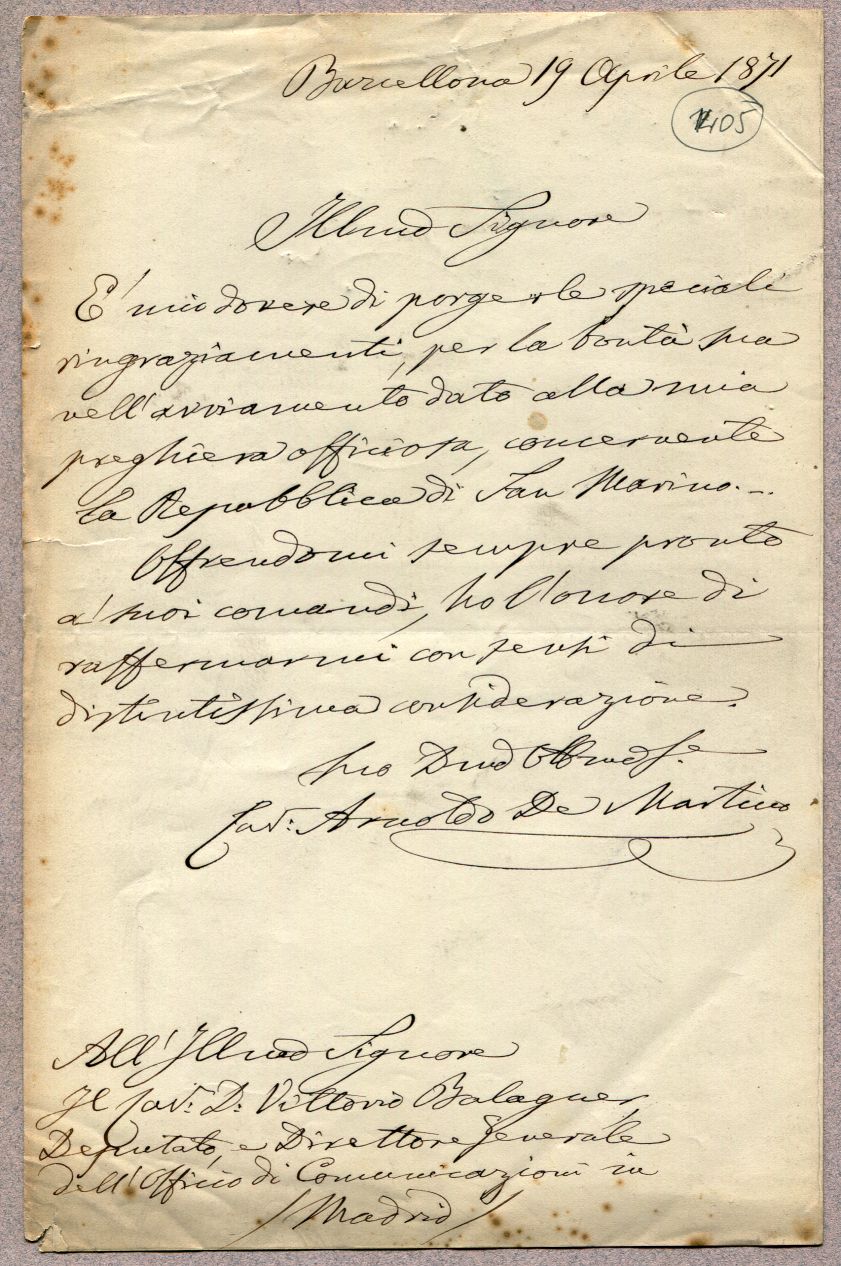 Barcellona 19 Aprile 1871
1405
Illmo Signore
E' mio dovere di porgerle speciali
ringraziamenti, per la bontà sua
nell'avviamento dato alla mia
preghiera officiosa, concernente
la Repubblica di San Marino.--
Offrendomi sempre pronto
a' suoi comandi, ho l'onore di
raffermarmi con sensi di
distintissima considerazione.
Suo Dmo Obbmo Se
Cav: Arnoldo De Martino
All' Illmo Signore
Il Cav: D: Vittorio Balaguer
Deputato, e Direttore Generale
dell'Officio di Comunicazioni in
/Madrid/